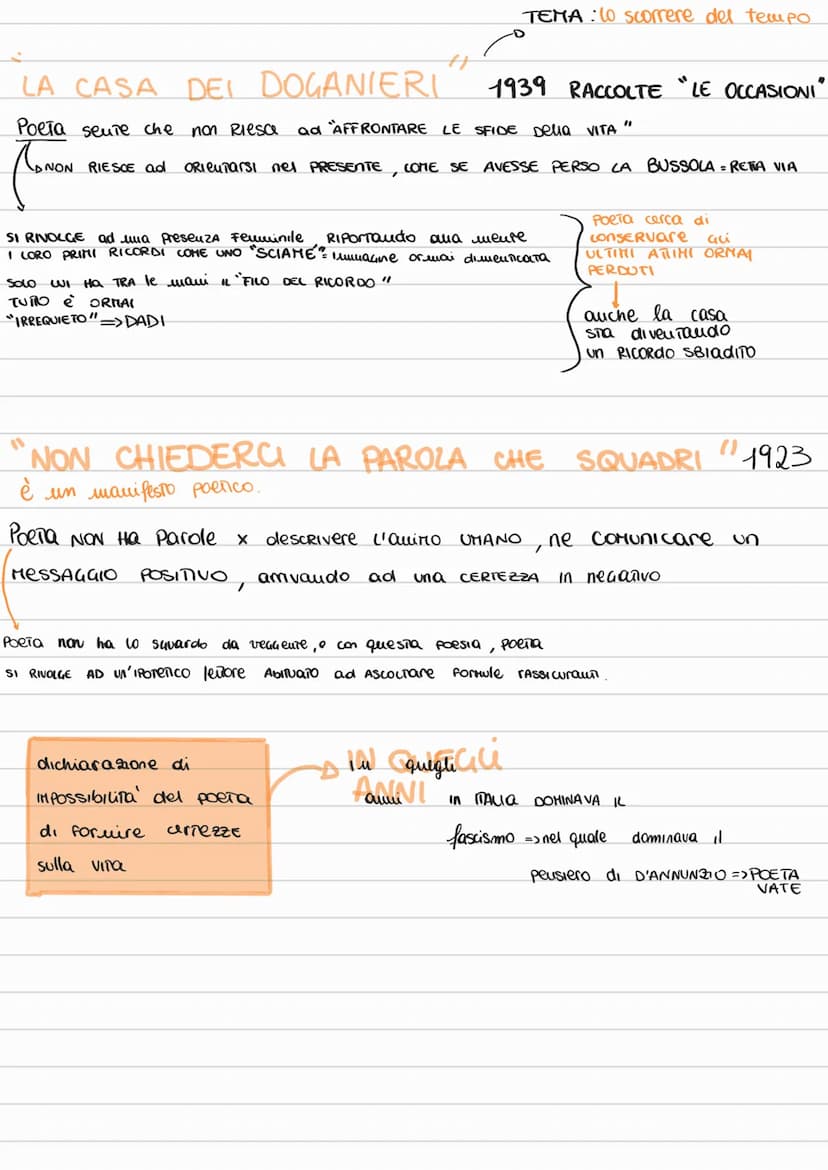 TEMA : lo scorrere del tempo
"LA CASA DEI DOGANIERI" 1939 RACCOLTE "LE OCCASIONI"
POETA sente che non Riesce ad "AFFRONTARE LE SFIDE Della VITA"
NON RIESCE ad ORIENTARSI nel PRESENTE, COME SE AVESSE PERSO LA BUSSOLA = RETTA VIA
SI RIVOLGE ad una Presenza Femminile RIPORTANDO alla mente
I LORO PRIMI RICORDI COME UNO "SCIAME" = immagine ormai dimenticata
SOLO LUI HA TRA le mani il "FILO DEL RICORDO"
TUTTO È ORMAI
"IRREQUIETO" => DADI
POETA cerca di
conservare gli
ULTIMI ATTIMI ORMAI
PERDUTI
anche la casa
sta diventando
un RICORDO SBIADITO
"NON CHIEDERCI LA PAROLA CHE SQUADRI" 1923
è un manifesto poetico.
POETA NON HA Parole x descrivere l'animo UMANO, ne COMUNICARE un
MESSAGGIO POSITIVO, arrivando ad una CERTEZZA in negativo
POETA non ha lo sguardo da veggente, e con questa POESIA, POETA
SI RIVOLGE AD UN'IPOTETICO lettore ABITUATO ad ASCOLTARE FORMULE rassicuranti.
dichiarazione di
IMPOSSIBILITÀ del POETA
di fornire certezze
sulla vita
IN QUEGLI
ANNI
In quegli
anni in ITALIA DOMINAVA IL
fascismo => nel quale dominava il
pensiero di D'ANNUNZIO => POETA
VATE